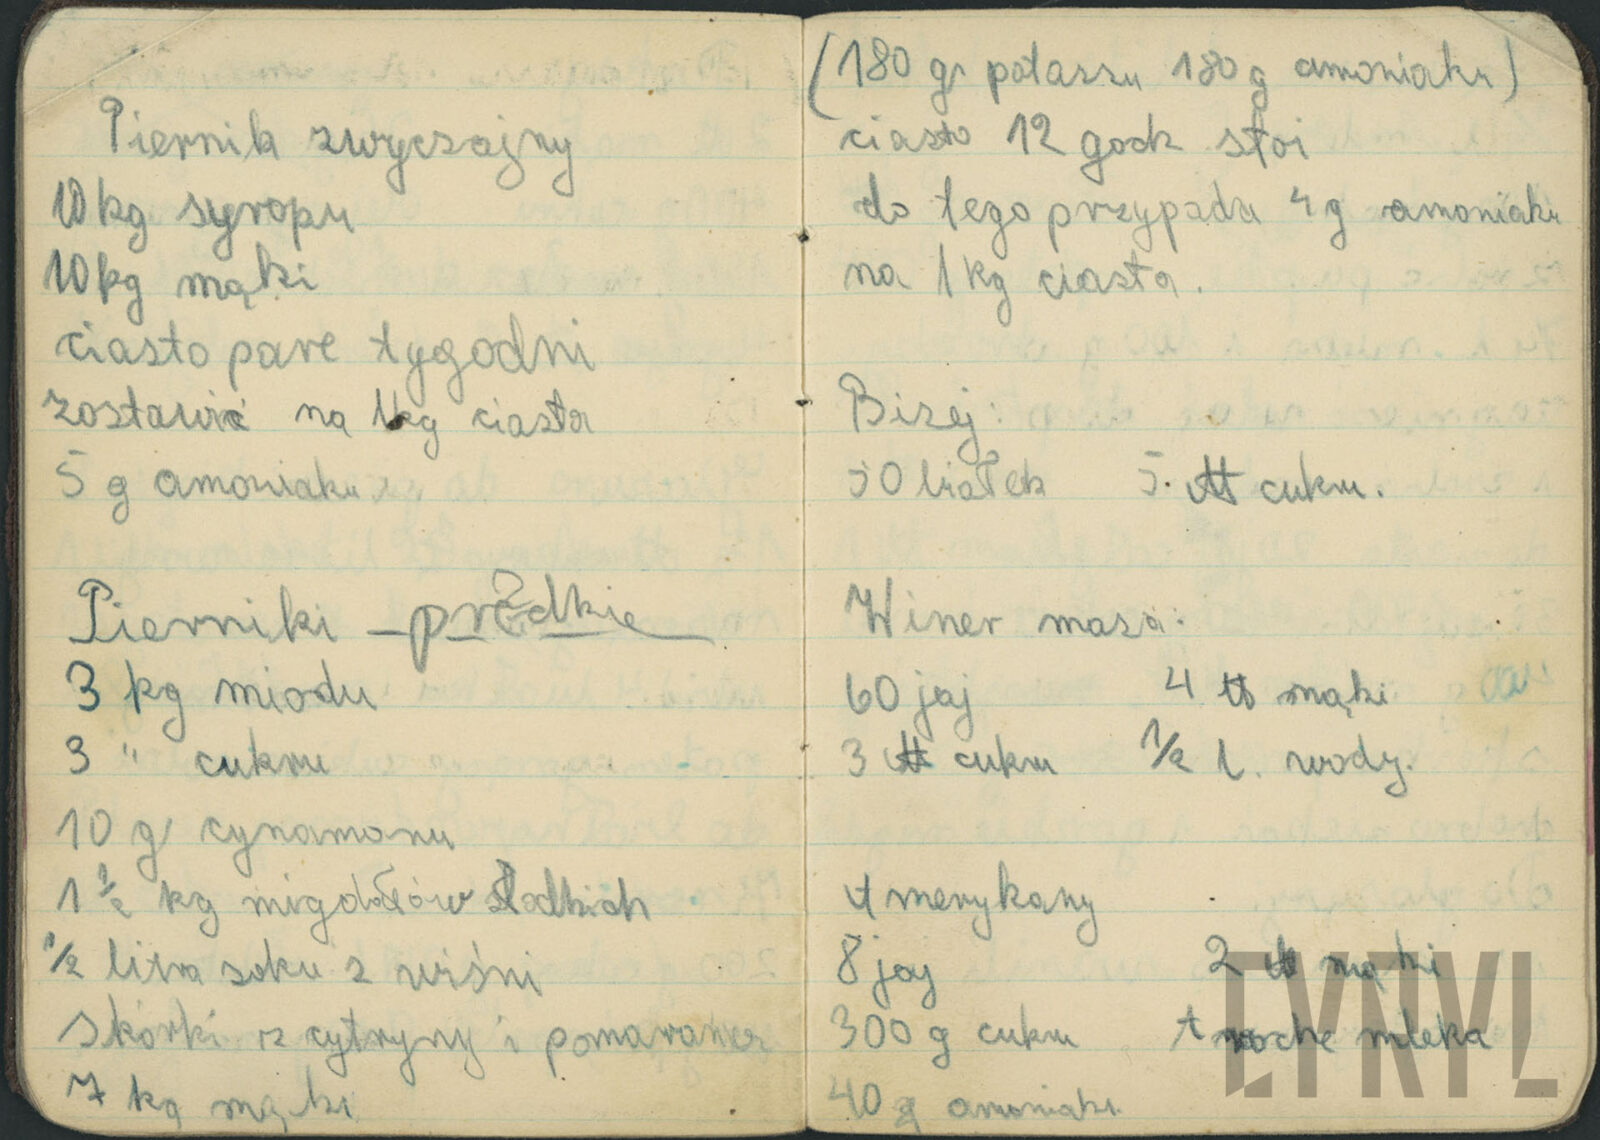 Piernik zwyczajny
10 kg syropu
10 kg mąki
ciasto pare tygodni
zostawić na 1 kg ciasta
5 g amoniaku
Pierniki prędkie
3 kg miodu
3 " cukru
10 g cynamonu
1 1/2 kg migdołów słodkich
1/2 litra soku z wiśni
skórki z cytryny i pomarańcz
7 kg mąki
(180 gr potaszu 180 g amoniaku)
ciasto 12 godz stoi
do tego przypada 4 g amoniaku
na 1 kg ciasta.
Bizej:
50 białek 5. ℔ cukru.
Winer masa:
60 jaj 4 ℔ mąki
3 ℔ cukru 1/2 l. wody.
Amerykany
8 jaj 2 ℔ mąki
300 g cukru troche mleka
40 g amoniaku
LYNYL